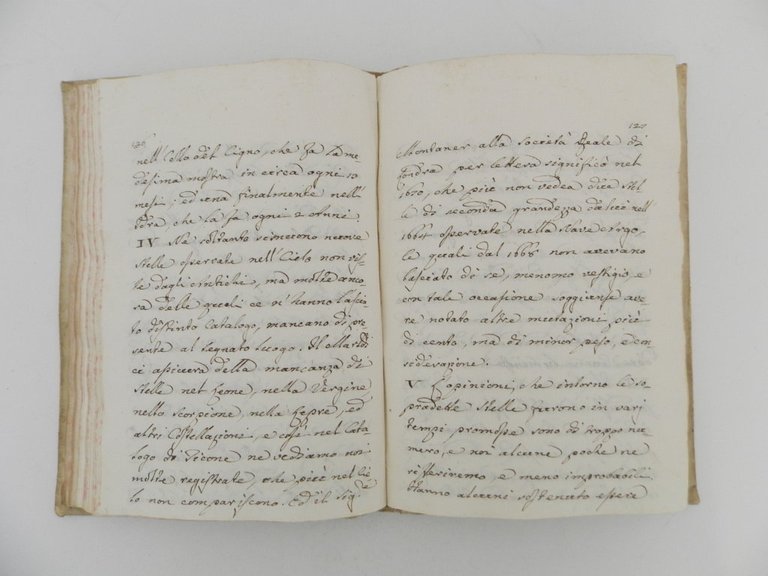 126
nell Collo del Cigno, che fa la me-
desima mostra in circa ogni 10
mesi; ed una finalmente nell'
Idra, che la fa ogni 2 Anni.
IV Ne soltanto si sono nuove
stelle osservate nell Cielo non vis-
te dagli Antichi, ma molte anco-
ra delle quali ce n'hanno lascia-
to distinto Catalogo, mancano di pre-
sente al segnato luogo. Il Maraldi
ci assicura della mancanza di
stelle nel Leone, nella Vergine
nello Scorpione, nella Lepre, ed
altri Costellazioni, e così nel Cata
logo di Ticone ne vediamo noi
molte registrate che più nel Cie
lo non compariscono. Ed il Sig.r
127
Montaner alla Società Reale di
Londra per lettera significò nel
1670, che più non vedea due stel
le di seconda grandezza da lui nell
1664 osservate nella Nave d'Argo,
le quali dal 1668 non avevano
lasciato di se, menomo vestigio e
con tale occasione soggiunse ave
re notato altre mutazioni più
di cento, ma di minor peso, e con
siderazione.
V L'opinioni, che intorno le so
pradette stelle furono in varj
tempi promosse sono di troppo nu
mero, e noi alcune poche ne
riferiremo, e meno improbabili.
Hanno alcuni sostenuto essere